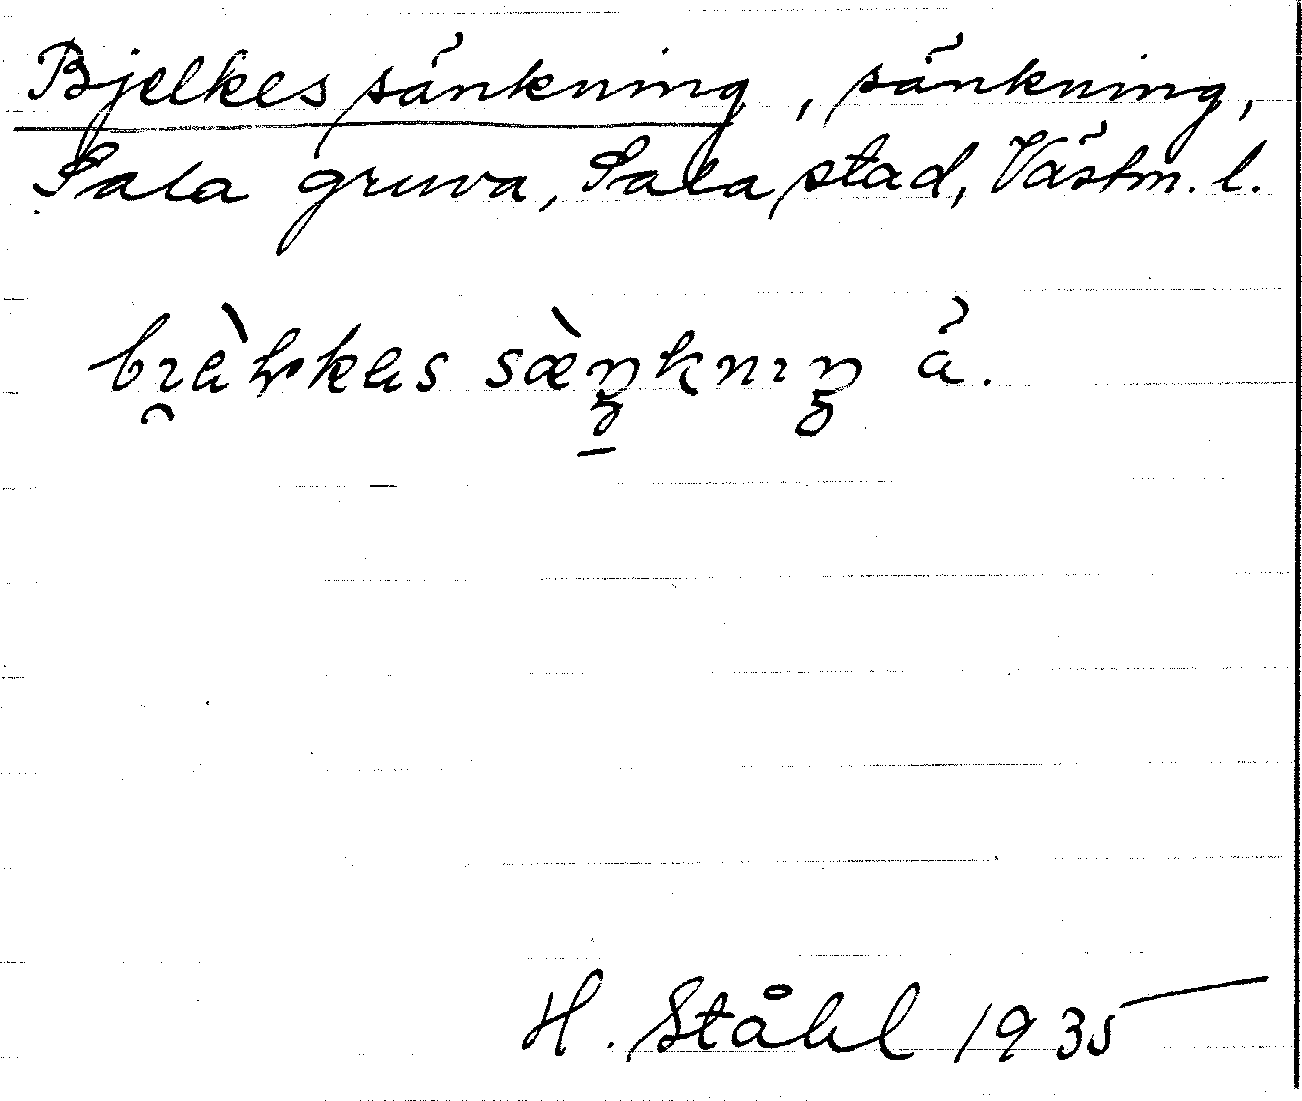 Bjelkes sänkning, sänkning,
Sala gruva, Sala stad, Västm. l.
bı̯àl̡kas sæ̀ŋ̱knıŋ ä.
H. Ståhl 1935